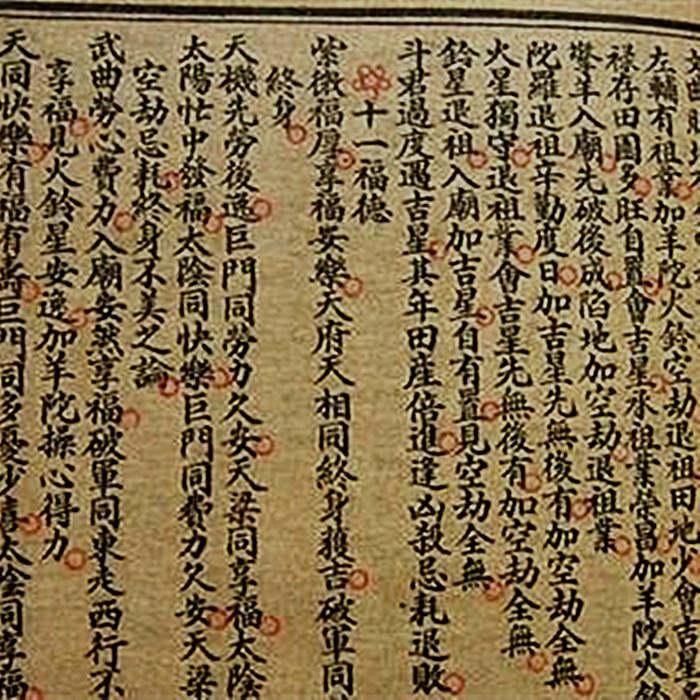 左輔有祖業加羊陀火鈴空劫退祖田地少會吉星
祿存田園多旺自置會吉星承祖業榮昌加羊陀火
擎羊入廟先破後成陷地加空劫退祖業
陀羅退祖辛勤度日加吉星先無後有加空劫全無
火星獨守退祖業會吉星先無後有加空劫全無
鈴星退祖入廟加吉星自有置見空劫全無
斗君過度遇吉星其年田産倍進逢凶殺忌耗退敗
十一福德
紫微福厚享福安樂天府天相同終身獲吉破軍同
終身
天機先勞後逸巨門同勞力久安天梁同享福太陰
太陽忙中發福太陰同快樂巨門同費力久安天梁
空劫忌耗終身不美之論
武曲勞心費力入廟安然享福破軍同東走西行不
享福見火鈴星安逸加羊陀操心得力
天同快樂有福有壽巨門同多憂少喜太陰同享福